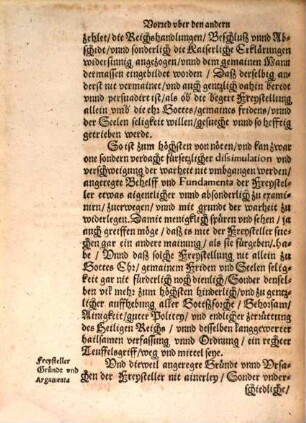 Vorred vber den andern
zehlet / die Reichshandlungen / Beschluß vnnd Ab-
schidt / vnnd sonderlich die Kaiserliche Erklärungen
widersinnig angezogen / vnnd dem gemainen Mann
dermassen eingebildet worden / Daß derselbig and-
derst nit vermainet / vnd auch gentzlich dahin beredt
vnnd persuadirt ist / als ob die begert Freystellung
allein vmb die ehr Gottes / gemaines fridens / vnnd
der Seelen seligkeit willen / gesucht vnnd so hefftig
getrieben werde.
So ist zum höchsten von nöten / vnd kan zwar
one sondern verdacht fürsetzlicher dissimulation vnd
verschweigung der warheit nit vmbgangen werden /
angeregte Behelff vnnd Fundamenta der Freystel-
ler etwas aigentlicher vnnd absonderlich zu exami-
niern / zuerwegen / vnnd mit grundt der warheit zu
widerlegen. Damit menigklich spüren vnd sehen / ja
auch greiffen möge / daß es mit der Freysteller sa-
chen gar ein andere mainung / als sie fürgeben / ha-
be / Vnnd daß solche Freystellung nit allein zu
Gottes Ehr / gemainem Friden vnd Seelen selig-
keit gar nit fürderlich noch dienlich / Sonder densel-
ben vil mehr zum höchsten hinderlich / vnd zu gentz-
licher auffhebung aller Gottsforcht / Gehorsam /
Ainigkeit / guter Politey / vnd endlicher zerrüttung
des Heiligen Reichs / vnnd desselben langgewerter
hailsamen verfassung vnnd Ordnung / ein rechter
Teuffelsgriff / weg vnd mittel seye.
Freysteller
Gründt vnd
Argumenta
Vnd dieweil angeregte Gründt vnnd Vrsa-
chen der Freysteller nit ainerley / Sonder vnder-
schiedliche /